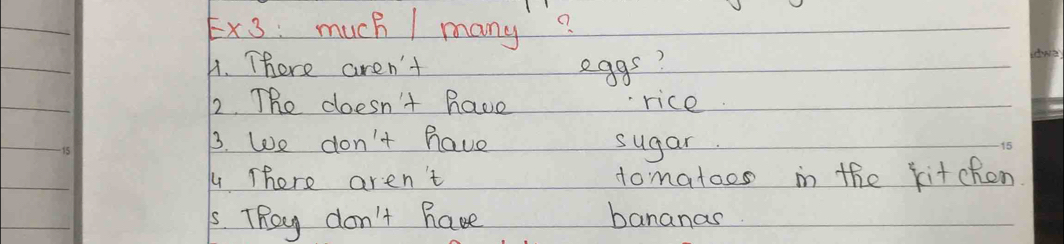 Ex3: much / many ?
1. There aren't eggs?
2. The doesn't have rice.
3. We don't have sugar.
4 There aren't tomatoes in the kitchen.
5. They don't have bananas.